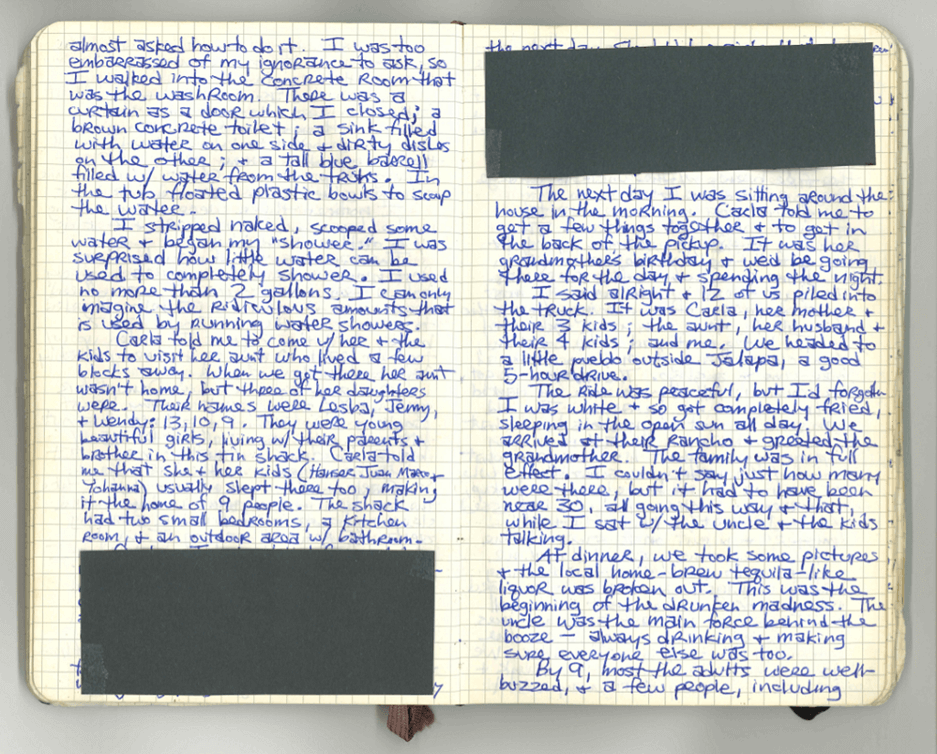 almost asked how to do it. I was too
embarrassed of my ignorance to ask, so
I walked into the concrete room that
was the washroom. There was a
curtain as a door which I closed; a
brown concrete toilet; a sink filled
with water on one side & dirty dishes
on the other; & a tall blue barrell
filled w/ water from the truks. In
the tub floated plastic bowls to scoop
the water.
I stripped naked, scooped some
water & began my "shower." I was
surprised how little water can be
used to completely shower. I used
no more than 2 gallons. I can only
imagine the ridiculous amounts that
is used by running water showers.
Carla told me to come w/ her & the
kids to visit her aunt who lived a few
blocks away. When we got there her aunt
wasn't home, but three of her daughters
were. Their names were Lesba, Jenny,
& Wendy: 13, 10, 9. They were young
beautiful girls, living w/ their parents &
brother in this tin shack. Carla told
me that she & her kids (Hanser, Juan Marco, &
Yohanna) usually slept there too, making
it the home of 9 people. The shack
had two small bedrooms, a kitchen
room, & an outdoor area w/ bathroom.
the next day
The next day I was sitting around the
house in the morning. Carla told me to
get a few things together & to get in
the back of the pickup. It was her
grandmothers birthday & we'd be going
there for the day & spending the night.
I said alright & 12 of us piled into
the truck. It was Carla, her mother &
their 3 kids; the aunt, her husband &
their 4 kids; and me. We headed to
a little pueblo outside Jalapa, a good
5-hour drive.
The ride was peaceful, but I'd forgotten
I was white & so got completely fried,
sleeping in the open sun all day. We
arrived at their rancho & greeted the
grandmother. The family was in full
effect. I couldn't say just how many
were there, but it had to have been
near 30, all going this way & that,
while I sat w/ the uncle & the kids
talking.
At dinner, we took some pictures
& the local home-brew tequila-like
liquor was broken out. This was the
beginning of the drunken madness. The
uncle was the main force behind the
booze – always drinking & making
sure everyone else was too.
By 9, most the adults were well-
buzzed, & a few people, including